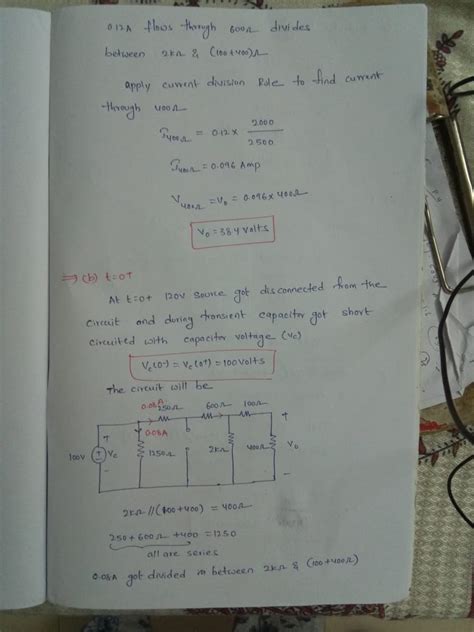 0.12A flows through 600Ω divides
between 2kΩ & (100+400)Ω
apply current division Rule to find current
through 400Ω
I400Ω = 0.12 × 2000
2500
I400Ω = 0.096 Amp
V400Ω = Vo = 0.096 × 400Ω
Vo = 38.4 Volts
⇒ (b) t=0+
At t=0+ 120V source got disconnected from the
circuit and during transient capacitor got short
circuited with capacitor voltage (Vc)
Vc(0-) = Vc(0+) = 100 Volts
The circuit will be
0.08A 250Ω 600Ω 100Ω
0.08A
100V + Vc - 1250Ω 2kΩ 400Ω + Vo -
2kΩ//(100+400) = 400Ω
250+600Ω+400 = 1250
all are series
0.08A got divided in between 2kΩ & (100+400Ω)